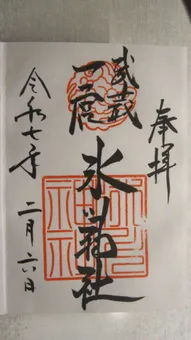 奉拝
武蔵
一宮
氷川神社
令和七年
二月六日